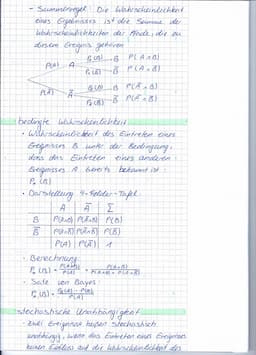 - Summenregel: Die Wahrscheinlichkeit
eines Ergebnisses ist die Summe der
Wahrscheinlichkeiten der Pfade, die zu
diesem Ereignis gehören
P_A(B) B P(A∩B)
P(A) A
P_A(B̄) B̄ P(A∩B̄)
P(Ā) Ā B P(Ā∩B)
B̄ P(Ā∩B̄)
bedingte Wahrscheinlichkeit
• Wahrscheinlichkeit des Eintreten eines
Ereignisses B unter der Bedingung,
dass das Eintreten eines anderen
Ereignisses A bereits bekannt ist:
P_A(B)
• Darstellung 4-Felder-Tafel
A Ā Σ
B P(A∩B) P(Ā∩B) P(B)
B̄ P(A∩B̄) P(Ā∩B̄) P(B̄)
P(A) P(Ā) 1
• Berechnung:
P_A(B) = P(A∩B)/P(A) =
• Satz von Bayes:
P_A(B) =
stochastische Unabhängigkeit
• zwei Ereignisse heißen stochastisch
unabhängig, wenn das Eintreten eines Ereignisses
keinen Einfluss auf die Wahrscheinlichkeit des